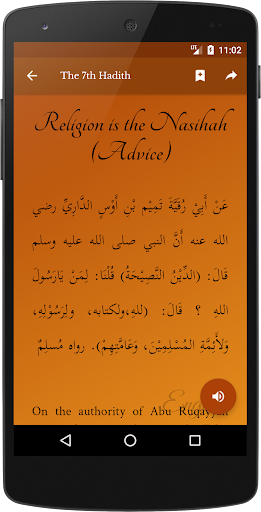 11:02
The 7th Hadith
Religion is the Nasihah
(Advice)
عَنْ أَبِيْ رُقَيَّةَ تَمِيْمِ بْنِ أَوْسٍ الدَّارِيِّ رضي
الله عنه أَنَّ النبي صلى الله عليه وسلم
قَالَ: (الدِّيْنُ النَّصِيْحَةُ) قُلْنَا: لِمَنْ يَارَسُولَ
اللهِ ؟ قَالَ: (للهِ،ولكتابه، ولِرَسُوْلِهِ،
وَلأَئِمَّةِ المُسْلِمِيْنَ، وَعَامَّتِهِمْ). رواه مُسلِمٌ
On the authority of Abu Ruqayyah